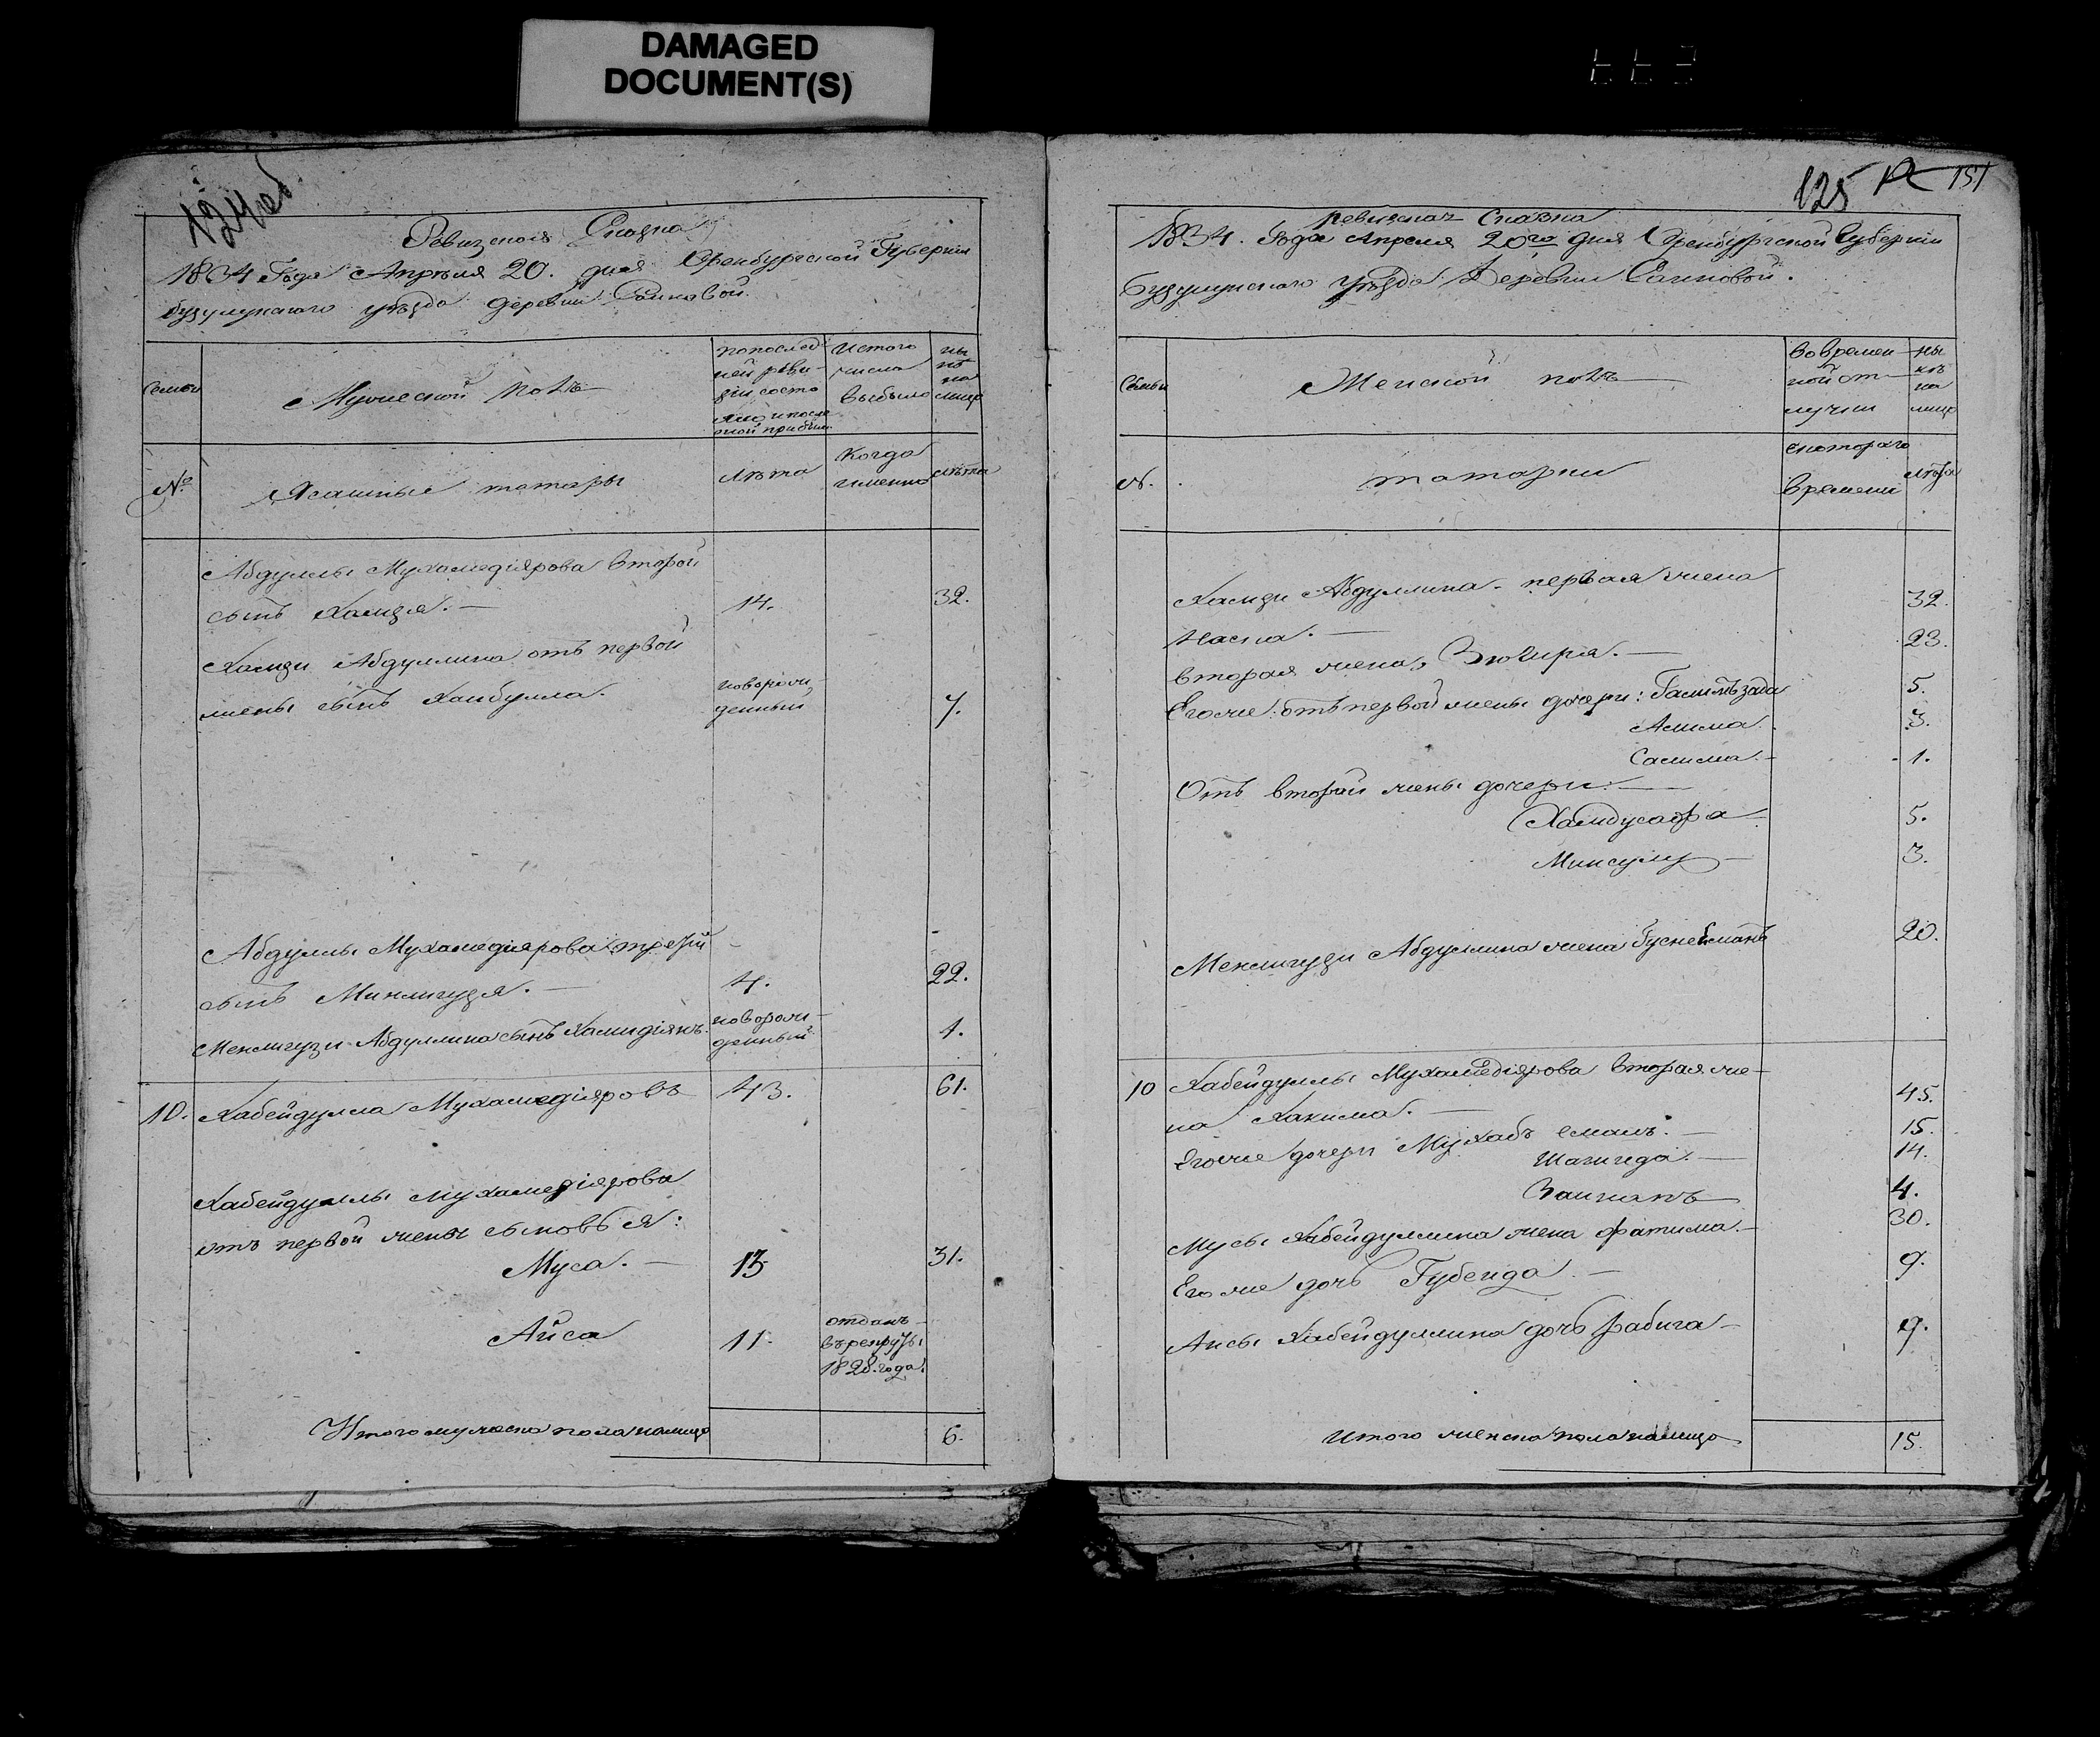 DAMAGED
DOCUMENT(S)
124об.
Ревизская Сказка
1834 Года Апрѣля 20. дня Оренбургской Губерніи
бузулукскаго уѣзда деревни
Семьи
Мужеской полъ
по послед
ней реви-
зіи состо
яло и после
оной прибыло
Изтого
числа
выбыло
ны
нѣ
на
лицо
№
Ясашные татары
лѣта
Когда
именно
лѣта
Абдуллы Мухамедиярова второй
сынъ Хамзя. —
14.
32.
Хамзи Абдуллина отъ первой
жены сынъ Хаибулла.
новорож-
денный
7.
Абдуллы Мухамедиярова третій
сынъ Минлигузя. —
4.
22.
Менлигузи Абдуллина сынъ Хамидіянъ.
новорож-
денный
1.
10.
Хабейдулла Мухамедіяровъ
43.
61.
Хабейдуллы Мухамедіярова
отъ первой жены сыновья:
Муса. —
13
31.
Айса
11.
отданъ
въ рекруты
1828. года
Итого мужеска пола налицо
6.
125
151
Ревизская Сказка
1834. Года Апреля 20го дня Оренбургской Губерніи
Бузулукскаго уѣзда Деревни
Семьи
Женской полъ
Вовремен
ной от-
лучки
ны
нѣ
на
лицо
№.
татарки
скотораго
времени
лѣта
Хамзи Абдуллина первая жена
32.
вторая жена Зюлиря. —
23.
Егоже отъ первой жены дочери:
5.
Алима.
3.
Салима. —
1.
Отъ второй жены дочери: —
Хамдусафа
5.
Минсулу —
3.
Менлигузи Абдуллина жена
20.
10
Хабейдуллы Мухамедіярова вторая же-
на Хакима. —
45.
Егоже дочери
15.
Шагида. —
14.
4.
Мусы Хабейдуллина жена Фатима. —
30.
Его же дочь Губейда. —
9.
Аисы Хабейдуллина дочь Рабига —
9.
Итого женска пола налицо
15.